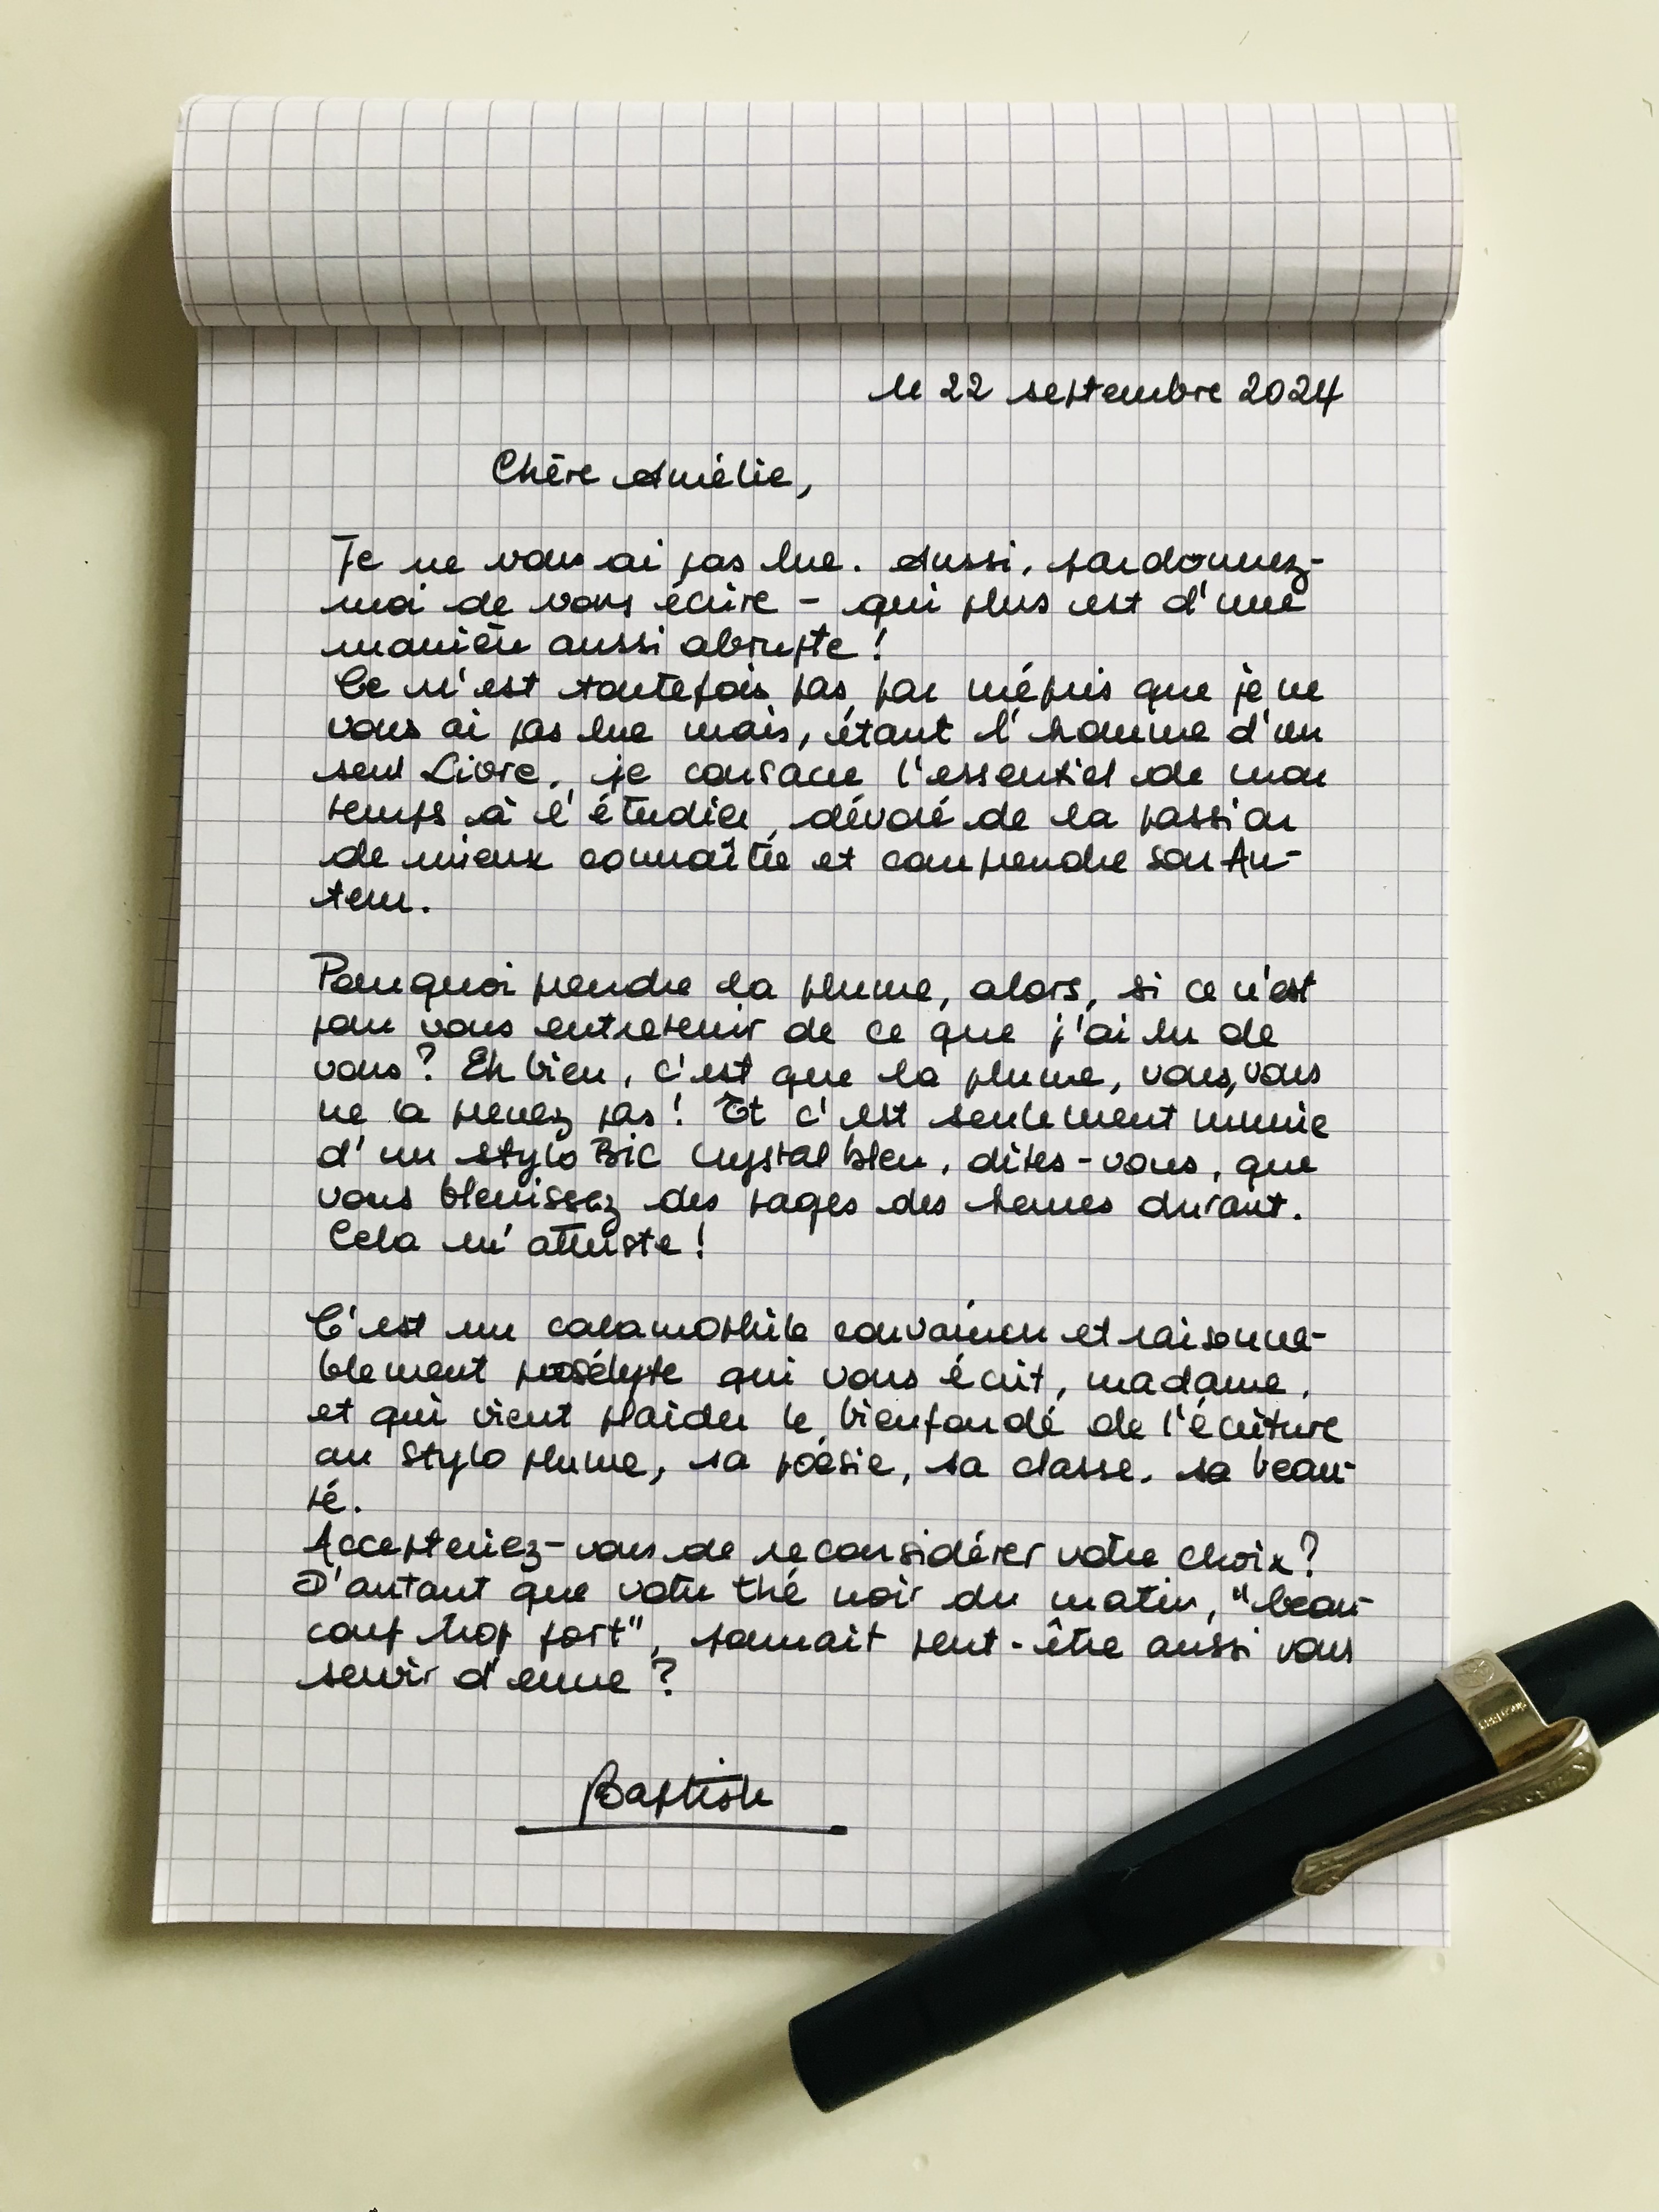 le 22 septembre 2024
Chère Amélie,
Je ne vous ai pas lue. Aussi, pardonnez-
moi de vous écrire - qui plus est d'une
manière aussi abrupte !
Ce n'est toutefois pas par mépris que je ne
vous ai pas lue mais, étant l'homme d'un
seul Livre, je consacre l'essentiel de mon
temps à l'étudier, dévoré de la passion
de mieux connaître et comprendre son Au-
teur.
Pourquoi prendre la plume, alors, si ce n'est
pour vous entretenir de ce que j'ai lu de
vous ? Eh bien, c'est que la plume, vous, vous
ne la prenez pas ! Et c'est seulement munie
d'un stylo Bic Crystal bleu, dites-vous, que
vous bleuissez des pages des heures durant.
Cela m'attriste !
C'est un calamophile convaincu et raisonna-
blement prosélyte qui vous écrit, madame,
et qui vient plaider le bienfondé de l'écriture
au stylo plume, sa poésie, sa classe, sa beau-
té.
Accepteriez-vous de reconsidérer votre choix ?
D'autant que votre thé noir du matin, "beau-
coup trop fort", pourrait peut-être aussi vous
servir d'encre ?
Baptiste